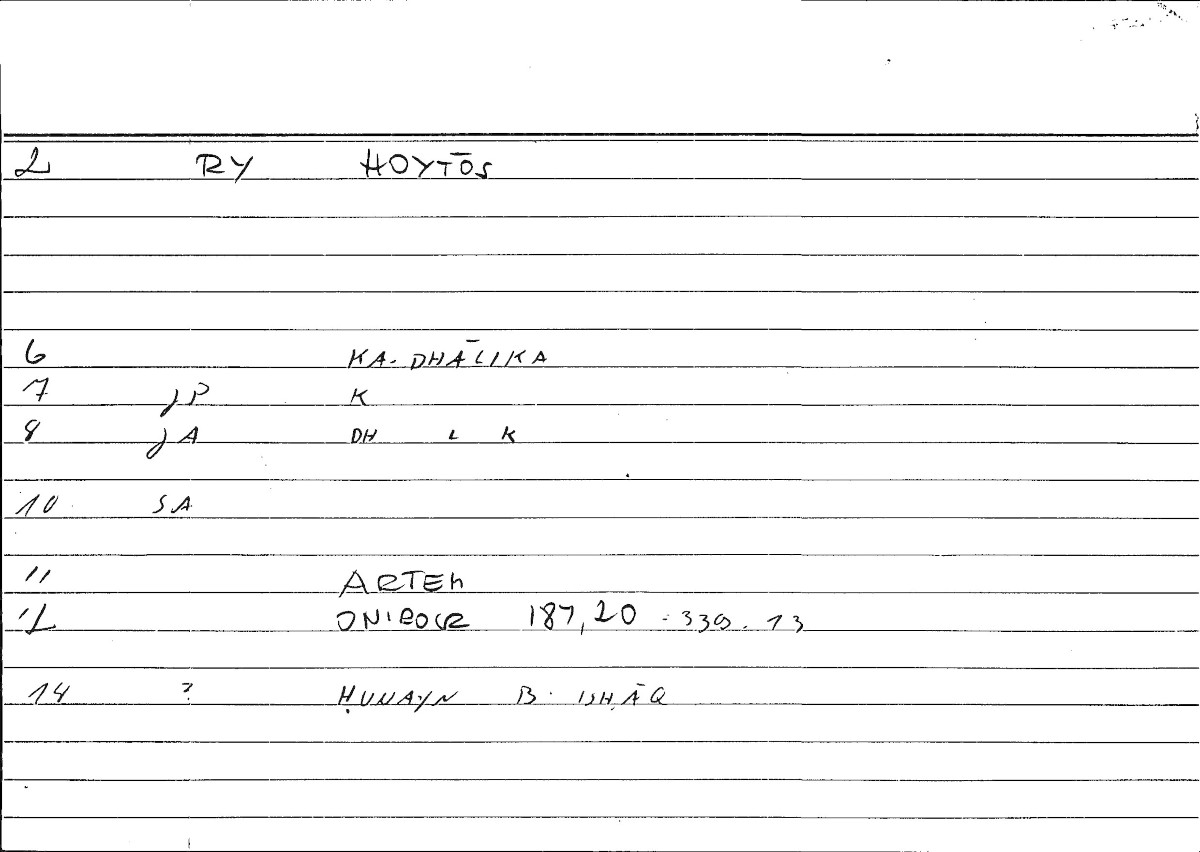 2 RY HOYTŌS
6 KA-DHĀLIKA
7 JP K
8 JA DH L K
10 SA
11 ARTEM
12 ONIROCR 187,20 - 339.13
14 ? ḤUNAYN B. ISḤĀQ